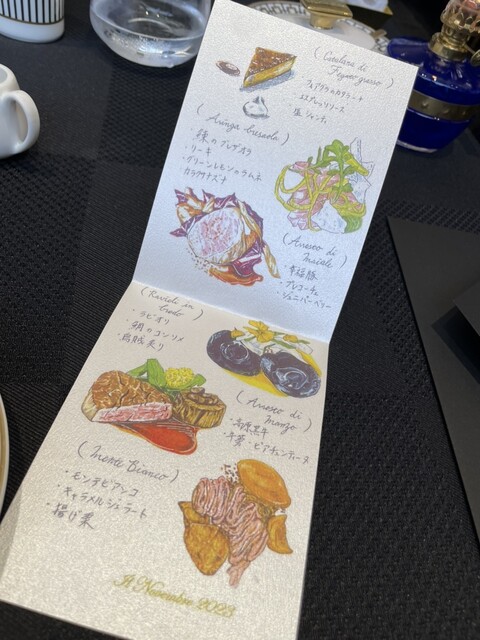 (Catalana di
Fegato grasso)
・フォアグラのカタラーナ
・エスプレッソソース
・塩 ジャンテュ
(Aringa bresaola)
・鰊のブレザオラ
・リーキ
・グリーンレモンのラムネ
・カラクサナズナ
(Arrosto di
Maiale)
・幸福豚
・プレコーチェ
・ジュニパーベリー
(Ravioli in
brodo)
・ラビオリ
・鶏のコンソメ
・烏賊炙り
(Arrosto di
Manzo)
・高原黒牛
・牛蒡・ピアチェンティーヌ
(Monte Bianco)
・モンテビアンコ
・キャラメルジェラート
・揚げ栗
Il Novembre 2023